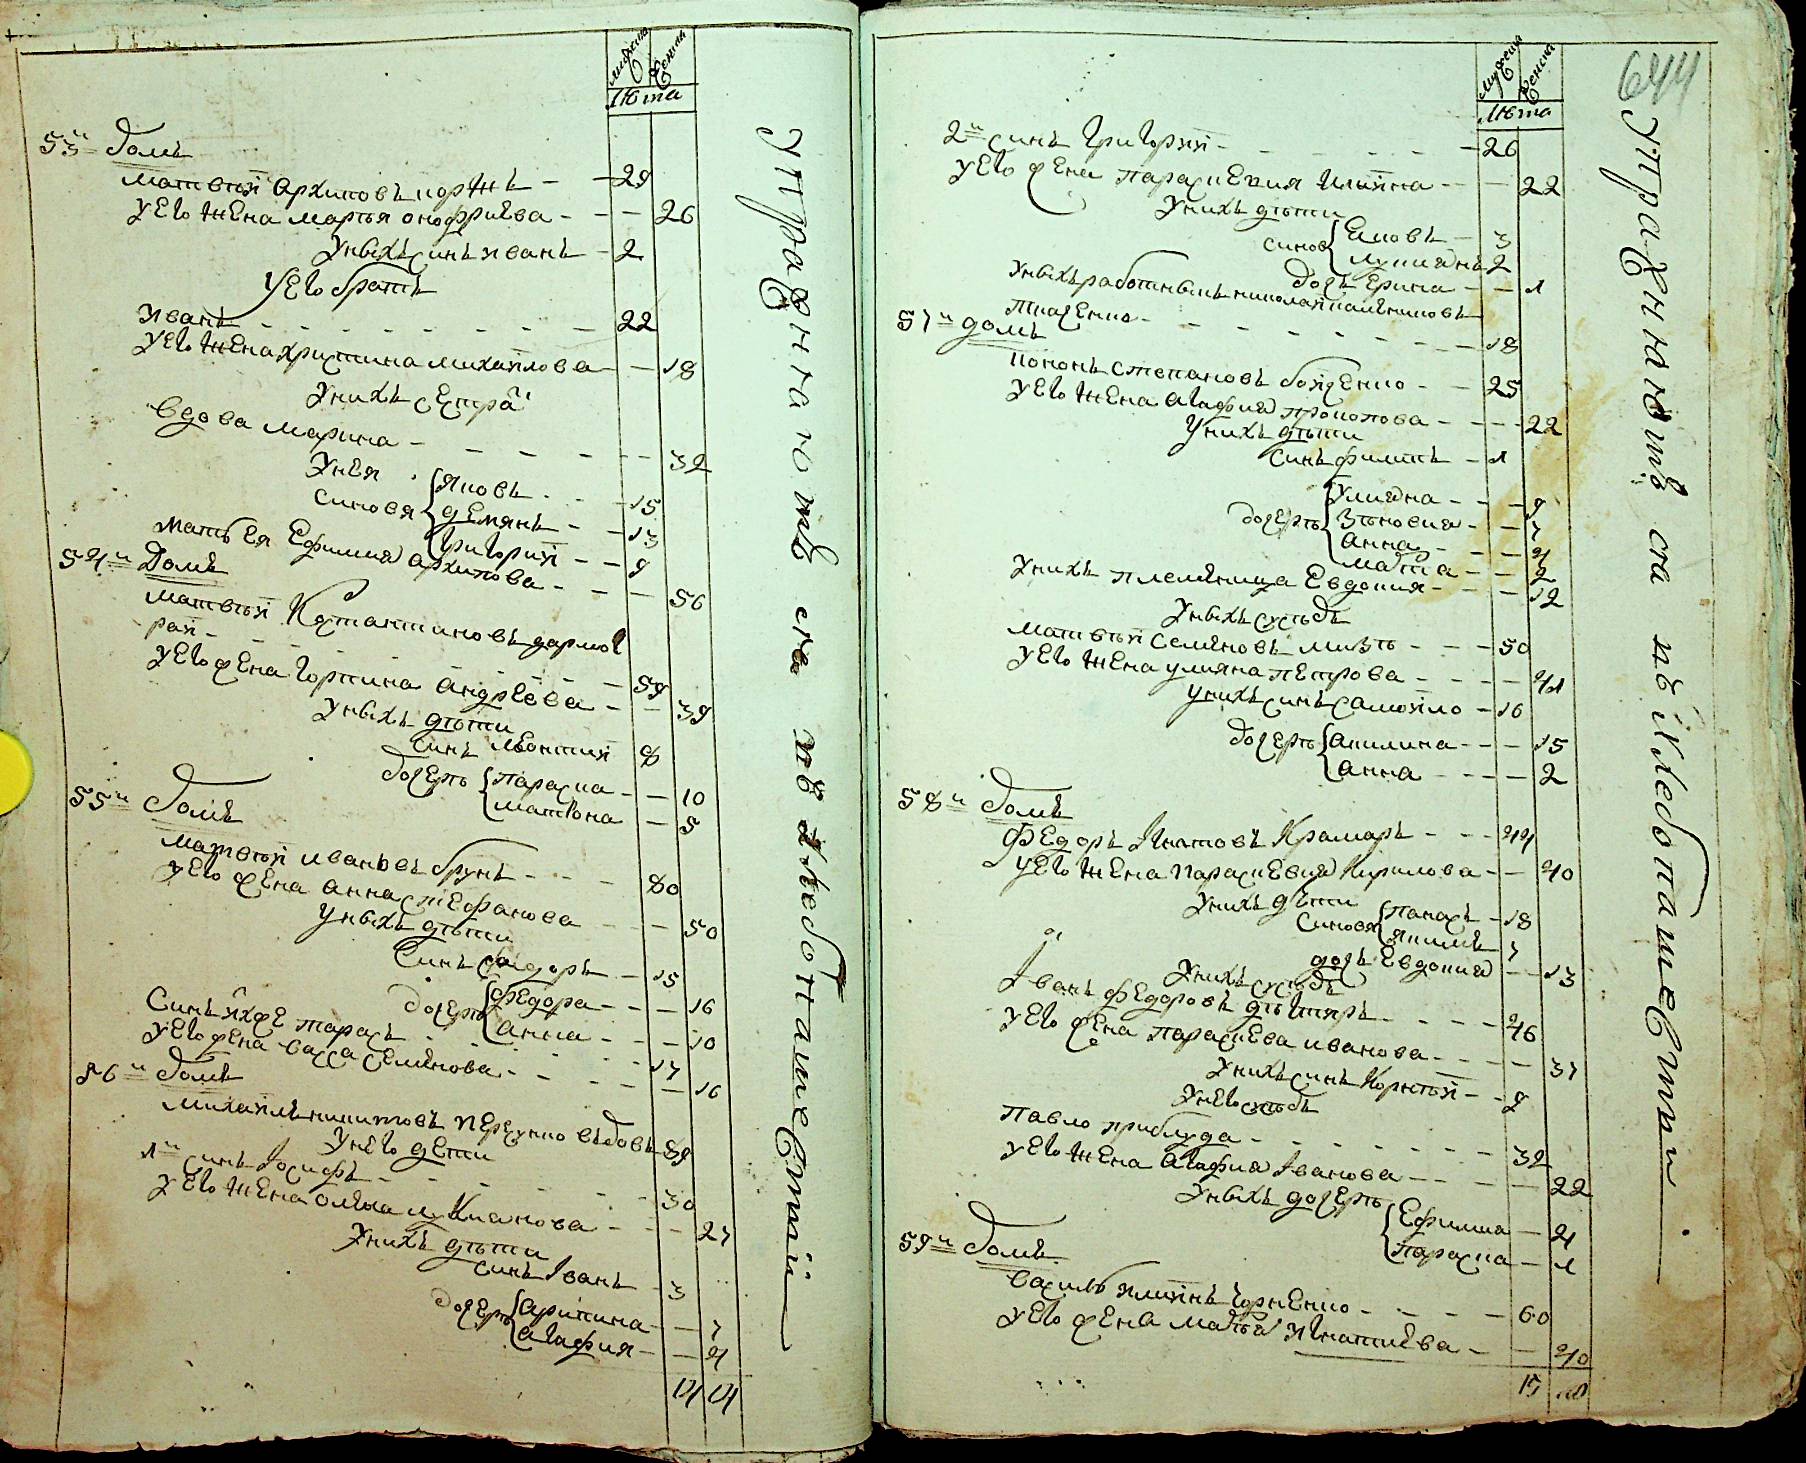 мужеска женска
Лѣта
53й домъ
матвѣй архиповъ коржъ 29
у его жена марья онофриева 26
у ныхъ синъ иванъ 2
у его братъ
иванъ 22
у его жена христина михайлова 18
у нихъ сестра
вдова марина 32
у нея
синовя
яковъ 15
демянъ 13
григорий 9
мать ея Ефимия архипова 56
54й Домъ
матвѣй Костантиновъ
рай 59
у его жена горпина андрѣева 39
у ныхъ дѣти
синъ леонтий 8
дочеръ
параска 10
матрона 5
55й домъ
матвѣй ивановъ брунь 80
у его жена анна стефанова 50
у ныхъ дѣти
Синъ 15
дочеръ
федора 16
анна 10
Синъ ихже тарасъ 17
у его жена васса семенова 16
56й домъ
михайлъ никитовъ вьдовъ 89
у него дети
1й синъ Іосифъ 30
у его жена олена лукианова 27
у нихъ дѣти
синъ Іванъ 3
дочеръ
арипина 7
агафия 4
упражняются въ хлебопашествіи
644
мужеска женска
Лѣта
2й синъ григорий 26
у его жена параскевия илыина 22
у нихъ дѣти
синов
яковъ 3
лукиянъ 2
дочъ ерина 1
у ныхъ работныкъ николай
ткаченко 18
57й домъ
кононъ степановъ бойченко 25
у его жена агафия прокопова 22
у нихъ дѣти
синъ филипъ 1
дочеръ
улияна 9
зѣновия 7
анна 4
2
у нихъ племѣница Евдокия 12
у ныхъ сусѣдъ
матвѣй семеновъ 50
у его жена улияна петрова 41
у нихъ синъ самойло 16
дочеръ
акилина 15
анна 2
58й домъ
Федоръ Игнатовъ Крамаръ 44
у его жена параскевия Кирилова 40
у нихъ дѣти
Синовя
панасъ 18
якимъ 7
дочъ Евдокия 13
у нихъ сусѣдъ
Іванъ федоровъ дѣгтяръ 46
у его жена параскева иванова 37
у нихъ синъ Корнѣй 9
у него сусѣдъ
Павло приблуда 32
у его жена агафия Іванова 22
у ныхъ дочеръ
Ефимия 4
параска 1
59й домъ
василь чорненко 60
у его жена марья игнатиева 40
упражняются въ хлебопашествии